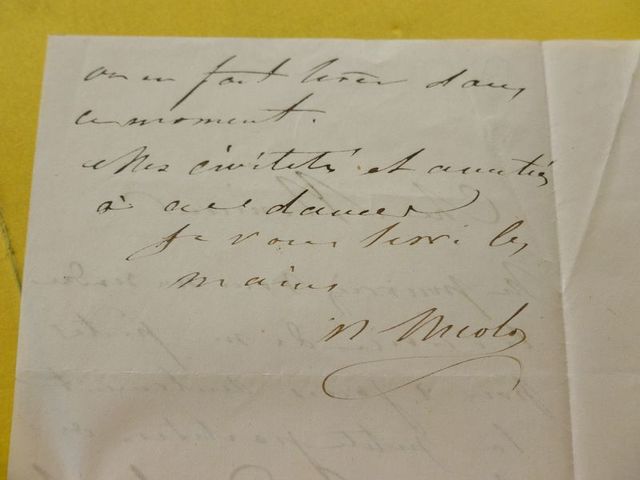 on en fait tirer dans
ce moment.
Mes civilités et amitiés
à ces dames
Je vous serre les
mains